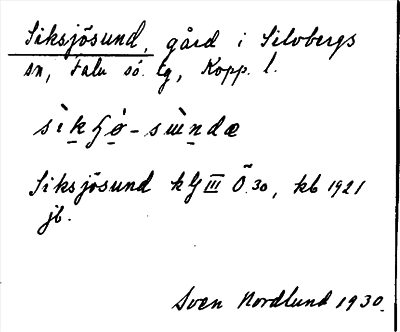 Siksjösund, gård i Silvbergs
sn, Falu sö. tg, Kopp. l.
Siksjösund kG III Ö. 30, kb 1921
jb.
Sven Nordlund 1930.